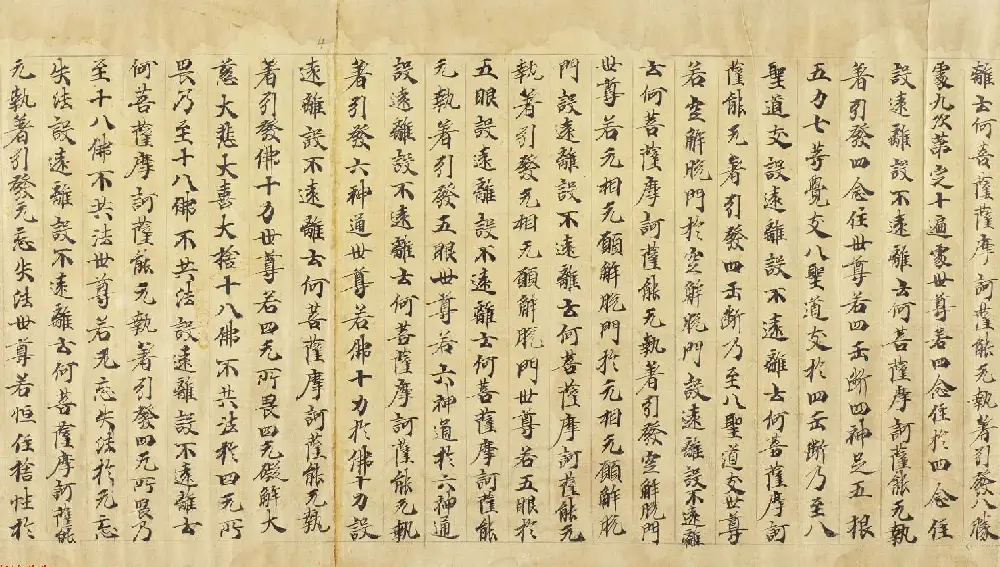 離云何菩薩摩訶薩能无執著引發八勝
處九次第定十遍處世尊若四念住於四念住
設遠離設不遠離云何菩薩摩訶薩能无執
著引發四念住世尊若四正断四神足五根
五力七等覺支八聖道支於四正断乃至八
聖道支設遠離設不遠離云何菩薩摩訶
薩能无著引發四正断乃至八聖道支世尊
若空解脫門於空解脫門設遠離設不遠離
云何菩薩摩訶薩能无執著引發空解脫門
世尊若无相无願解脫門於无相无願解脫
門設遠離設不遠離云何菩薩摩訶薩能无
執著引發无相无願解脫門世尊若五眼於
五眼設遠離設不遠離云何菩薩摩訶薩能
无執著引發五眼世尊若六神通於六神通
設遠離設不遠離云何菩薩摩訶薩能无執
著引發六神通世尊若佛十力於佛十力設
遠離設不遠離云何菩薩摩訶薩能无執
著引發佛十力世尊若四无所畏四无礙解大
慈大悲大喜大捨十八佛不共法於四无所
畏乃至十八佛不共法設遠離設不遠離云
何菩薩摩訶薩能无執著引發四无所畏乃
至十八佛不共法世尊若无忘失法於无忘
失法設遠離設不遠離云何菩薩摩訶薩能
无執著引發无忘失法世尊若恒住捨性於